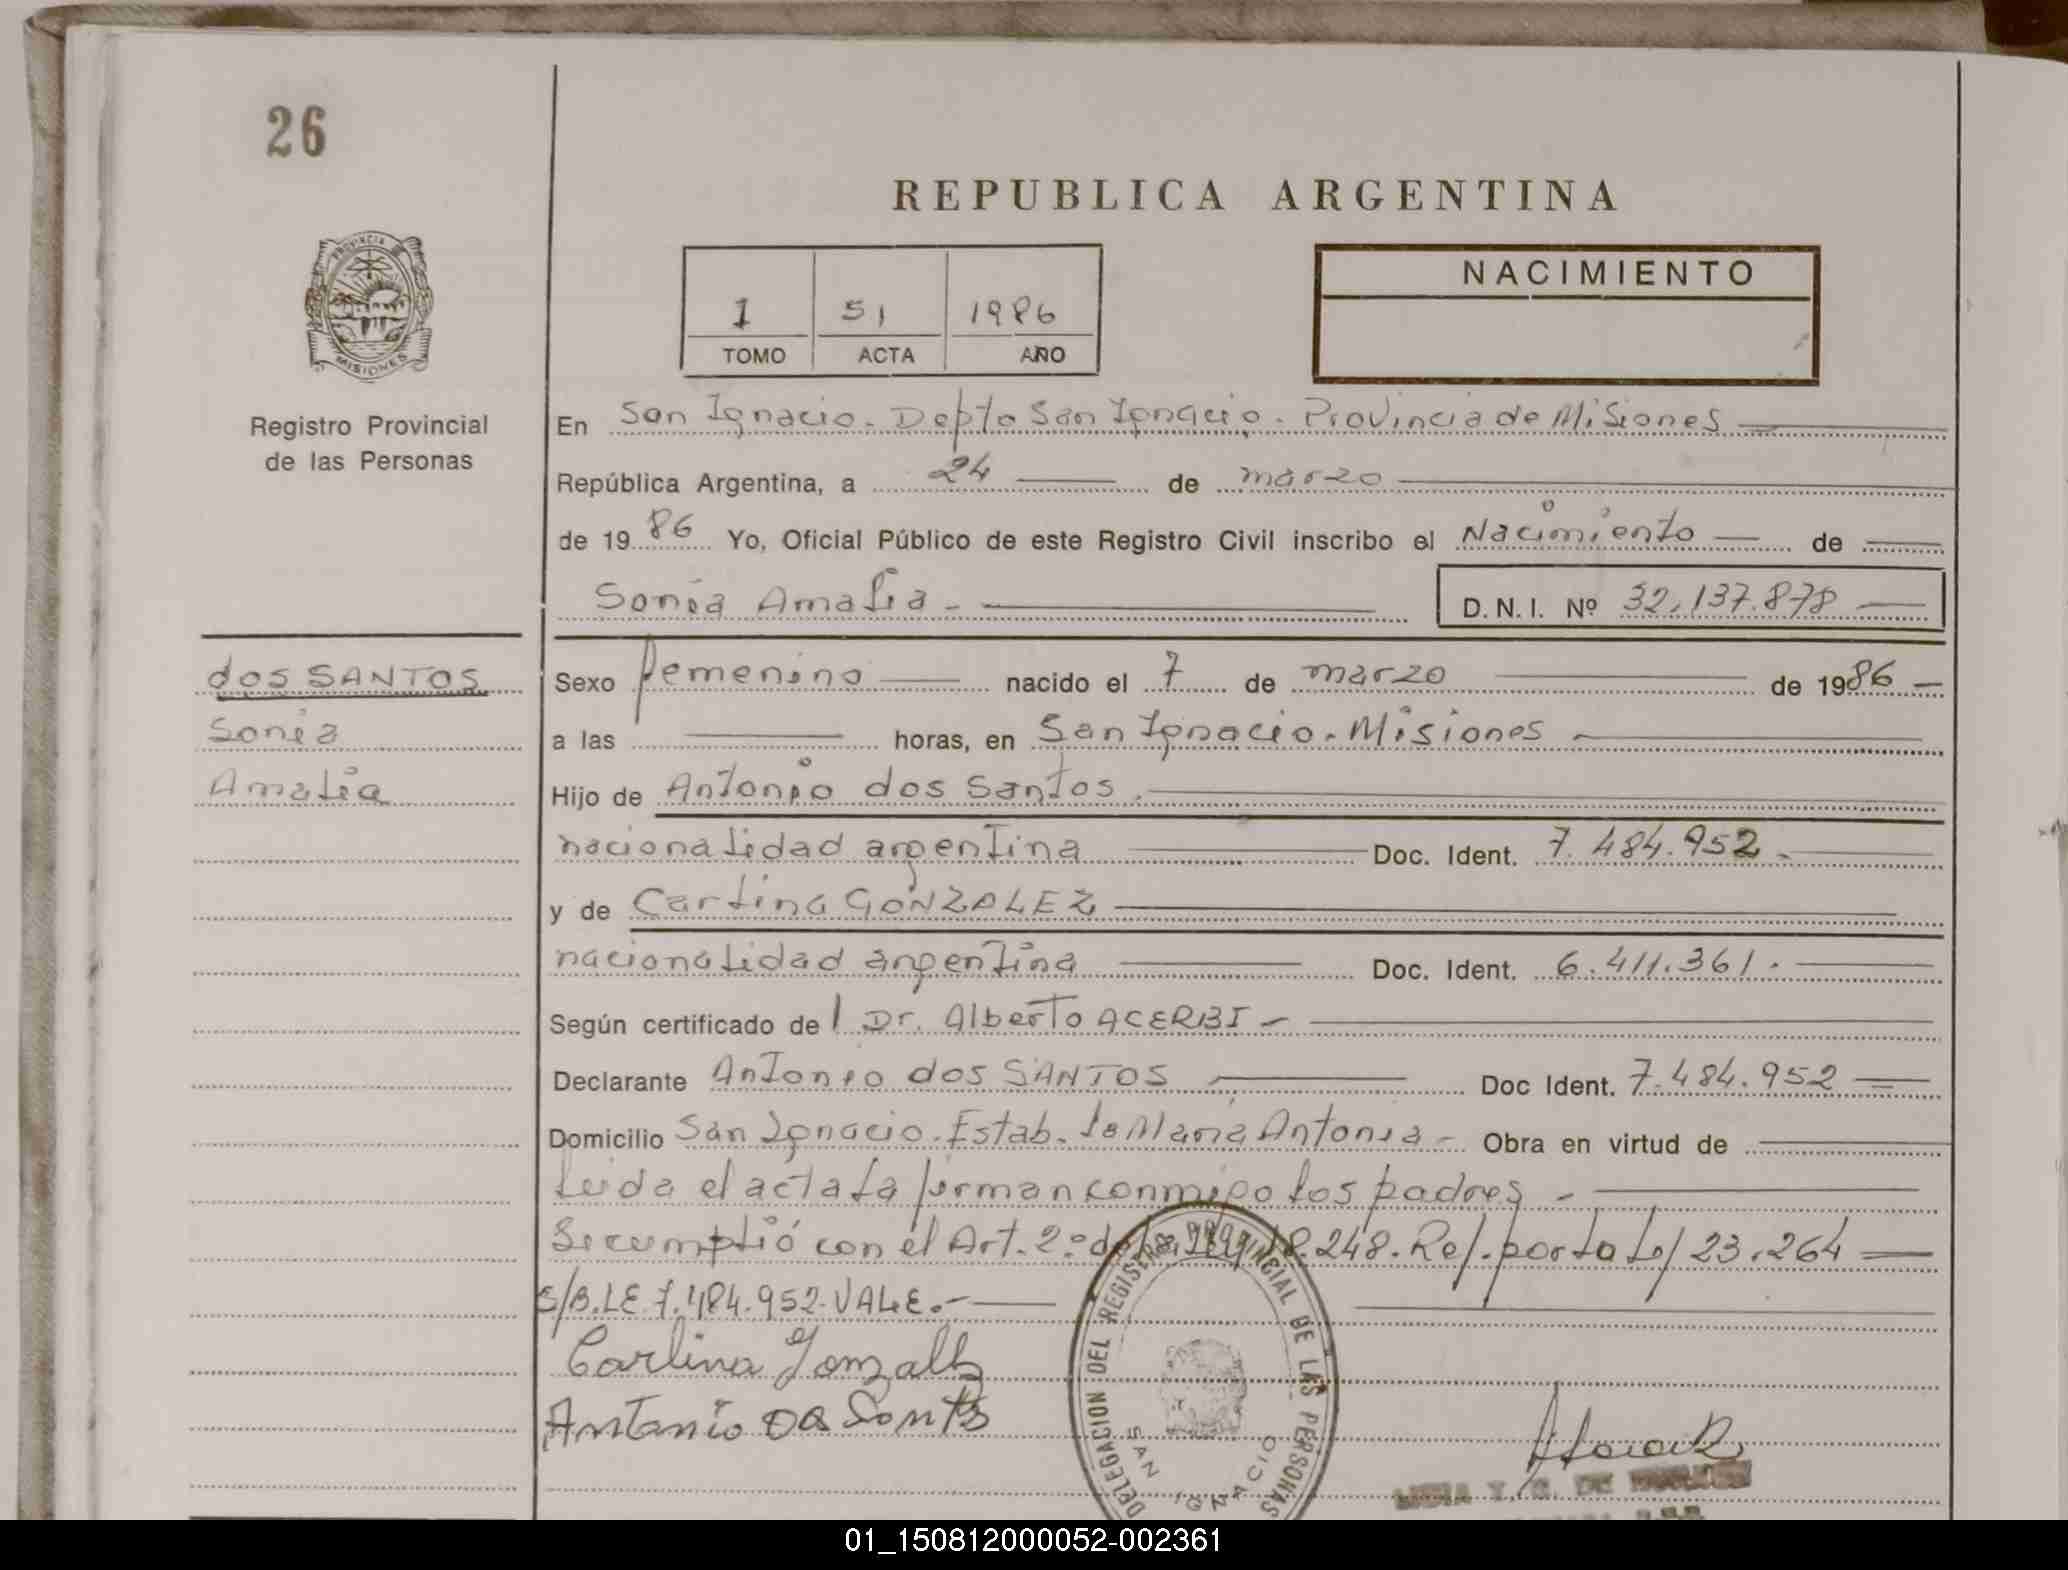 26
REPUBLICA ARGENTINA
PROVINCIA DE
MISIONES
Registro Provincial
de las Personas
1 51 1986
TOMO ACTA AÑO
NACIMIENTO
En San Ignacio. Depto San Ignacio. Provincia de Misiones
República Argentina, a 24 de marzo
de 1986 Yo, Oficial Público de este Registro Civil inscribo el Nacimiento de
Sonia Amalia - D.N.I. Nº 32.137.878
dos SANTOS
Sonia
Amalia
Sexo femenino nacido el 7 de marzo de 1986 -
a las horas, en San Ignacio. Misiones
Hijo de Antonio dos Santos.
nacionalidad argentina Doc. Ident. 7.484.952.-
y de Carlina GONZALEZ
nacionalidad argentina Doc. Ident. 6.411.361.
Según certificado del Dr. Alberto ACERBI -
Declarante Antonio dos SANTOS Doc Ident. 7.484.952
Domicilio San Ignacio. Estab. la Maria Antonia - Obra en virtud de
Leida el acta la firman conmigo los padres -
Se cumplió con el Art. 2.º de la Ley 18.248. Ref. por la Ley 23.264
S/B.LE.7.484.952-VALE.-
Carlina Gonzalez
Antonio Dos Santos
DELEGACION DEL REGISTRO PROVINCIAL DE LAS PERSONAS
SAN IGNACIO
01_150812000052-002361